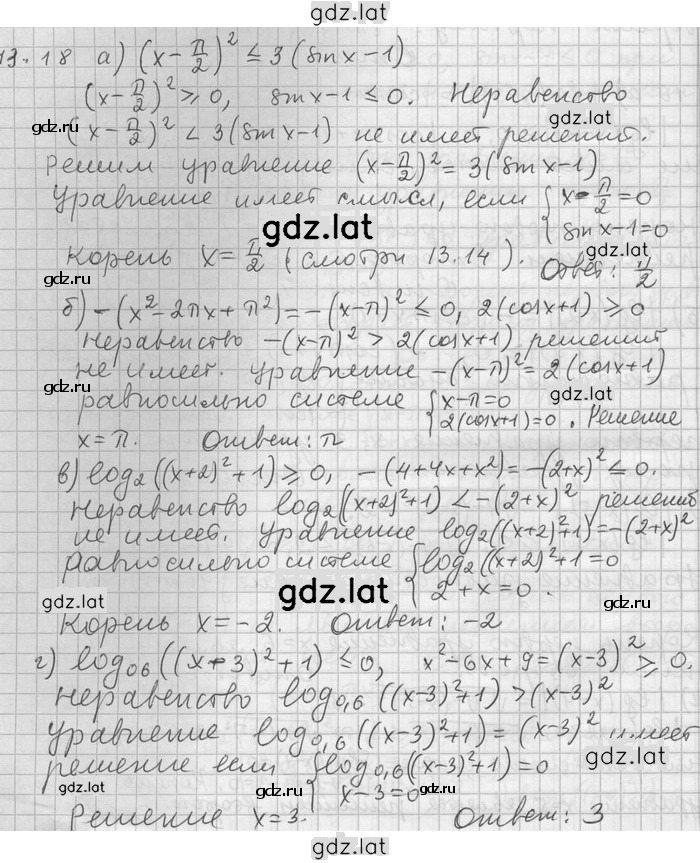 gdz.lat
13.18 а) (x - π/2)² ≤ 3(sin x - 1)
(x - π/2)² ≥ 0, sin x - 1 ≤ 0. Неравенство
gdz.lat gdz.lat
(x - π/2)² < 3(sin x - 1) не имеет решений.
Решим уравнение (x - π/2)² = 3(sin x - 1)
Уравнение имеет смысл, если { x - π/2 = 0
sin x - 1 = 0
gdz.lat
gdz.lat gdz.lat
Корень x = π/2 (смотри 13.14). Ответ: π/2
б) -(x² - 2πx + π²) = -(x - π)² ≤ 0, 2(cos x + 1) ≥ 0
Неравенство -(x - π)² > 2(cos x + 1) решений
gdz.lat
не имеет. Уравнение -(x - π)² = 2(cos x + 1)
gdz.lat gdz.lat
равносильно системе { x - π = 0
2(cos x + 1) = 0 . Решение
x = π. Ответ: π
в) log₂((x+2)² + 1) ≥ 0, -(4 + 4x + x²) = -(2 + x)² ≤ 0.
Неравенство log₂((x+2)² + 1) < -(2 + x)² решений
gdz.lat
gdz.lat
не имеет. Уравнение log₂((x+2)² + 1) = -(2 + x)²
равносильно системе { log₂((x+2)² + 1 = 0
2 + x = 0 .
gdz.lat gdz.lat gdz.lat
Корень x = -2. Ответ: -2
г) log₀₆((x - 3)² + 1) ≤ 0, x² - 6x + 9 = (x - 3)² ≥ 0.
gdz.lat gdz.lat
Неравенство log₀,₆((x-3)² + 1) > (x-3)²
gdz.lat
Уравнение log₀,₆((x-3)² + 1) = (x-3)² имеет
gdz.lat
решение если { log₀,₆((x-3)² + 1) = 0
x - 3 = 0
gdz.lat gdz.lat
Решение x = 3. Ответ: 3
gdz.lat